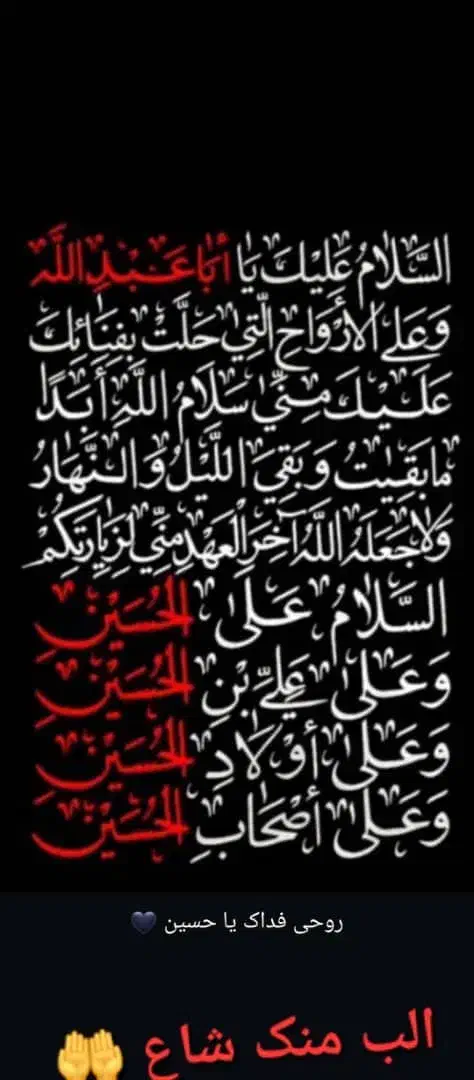 السَّلامُ عَلَيْكَ يَا أَبَا عَبْدِ اللَّهِ
وَعَلَى الأَرْوَاحِ الَّتِي حَلَّتْ بِفِنَائِكَ
عَلَيْكَ مِنِّي سَلَامُ اللَّهِ أَبَدًا
مَا بَقِيتُ وَبَقِيَ اللَّيْلُ وَالنَّهَارُ
وَلَا جَعَلَهُ اللَّهُ آخِرَ الْعَهْدِ مِنِّي لِزِيَارَتِكُمْ
السَّلَامُ عَلَى الْحُسَيْنِ
وَعَلَى عَلِيِّ بْنِ الْحُسَيْنِ
وَعَلَى أَوْلَادِ الْحُسَيْنِ
وَعَلَى أَصْحَابِ الْحُسَيْنِ
روحی فداک یا حسین 🖤
الب منک شاع 🤲